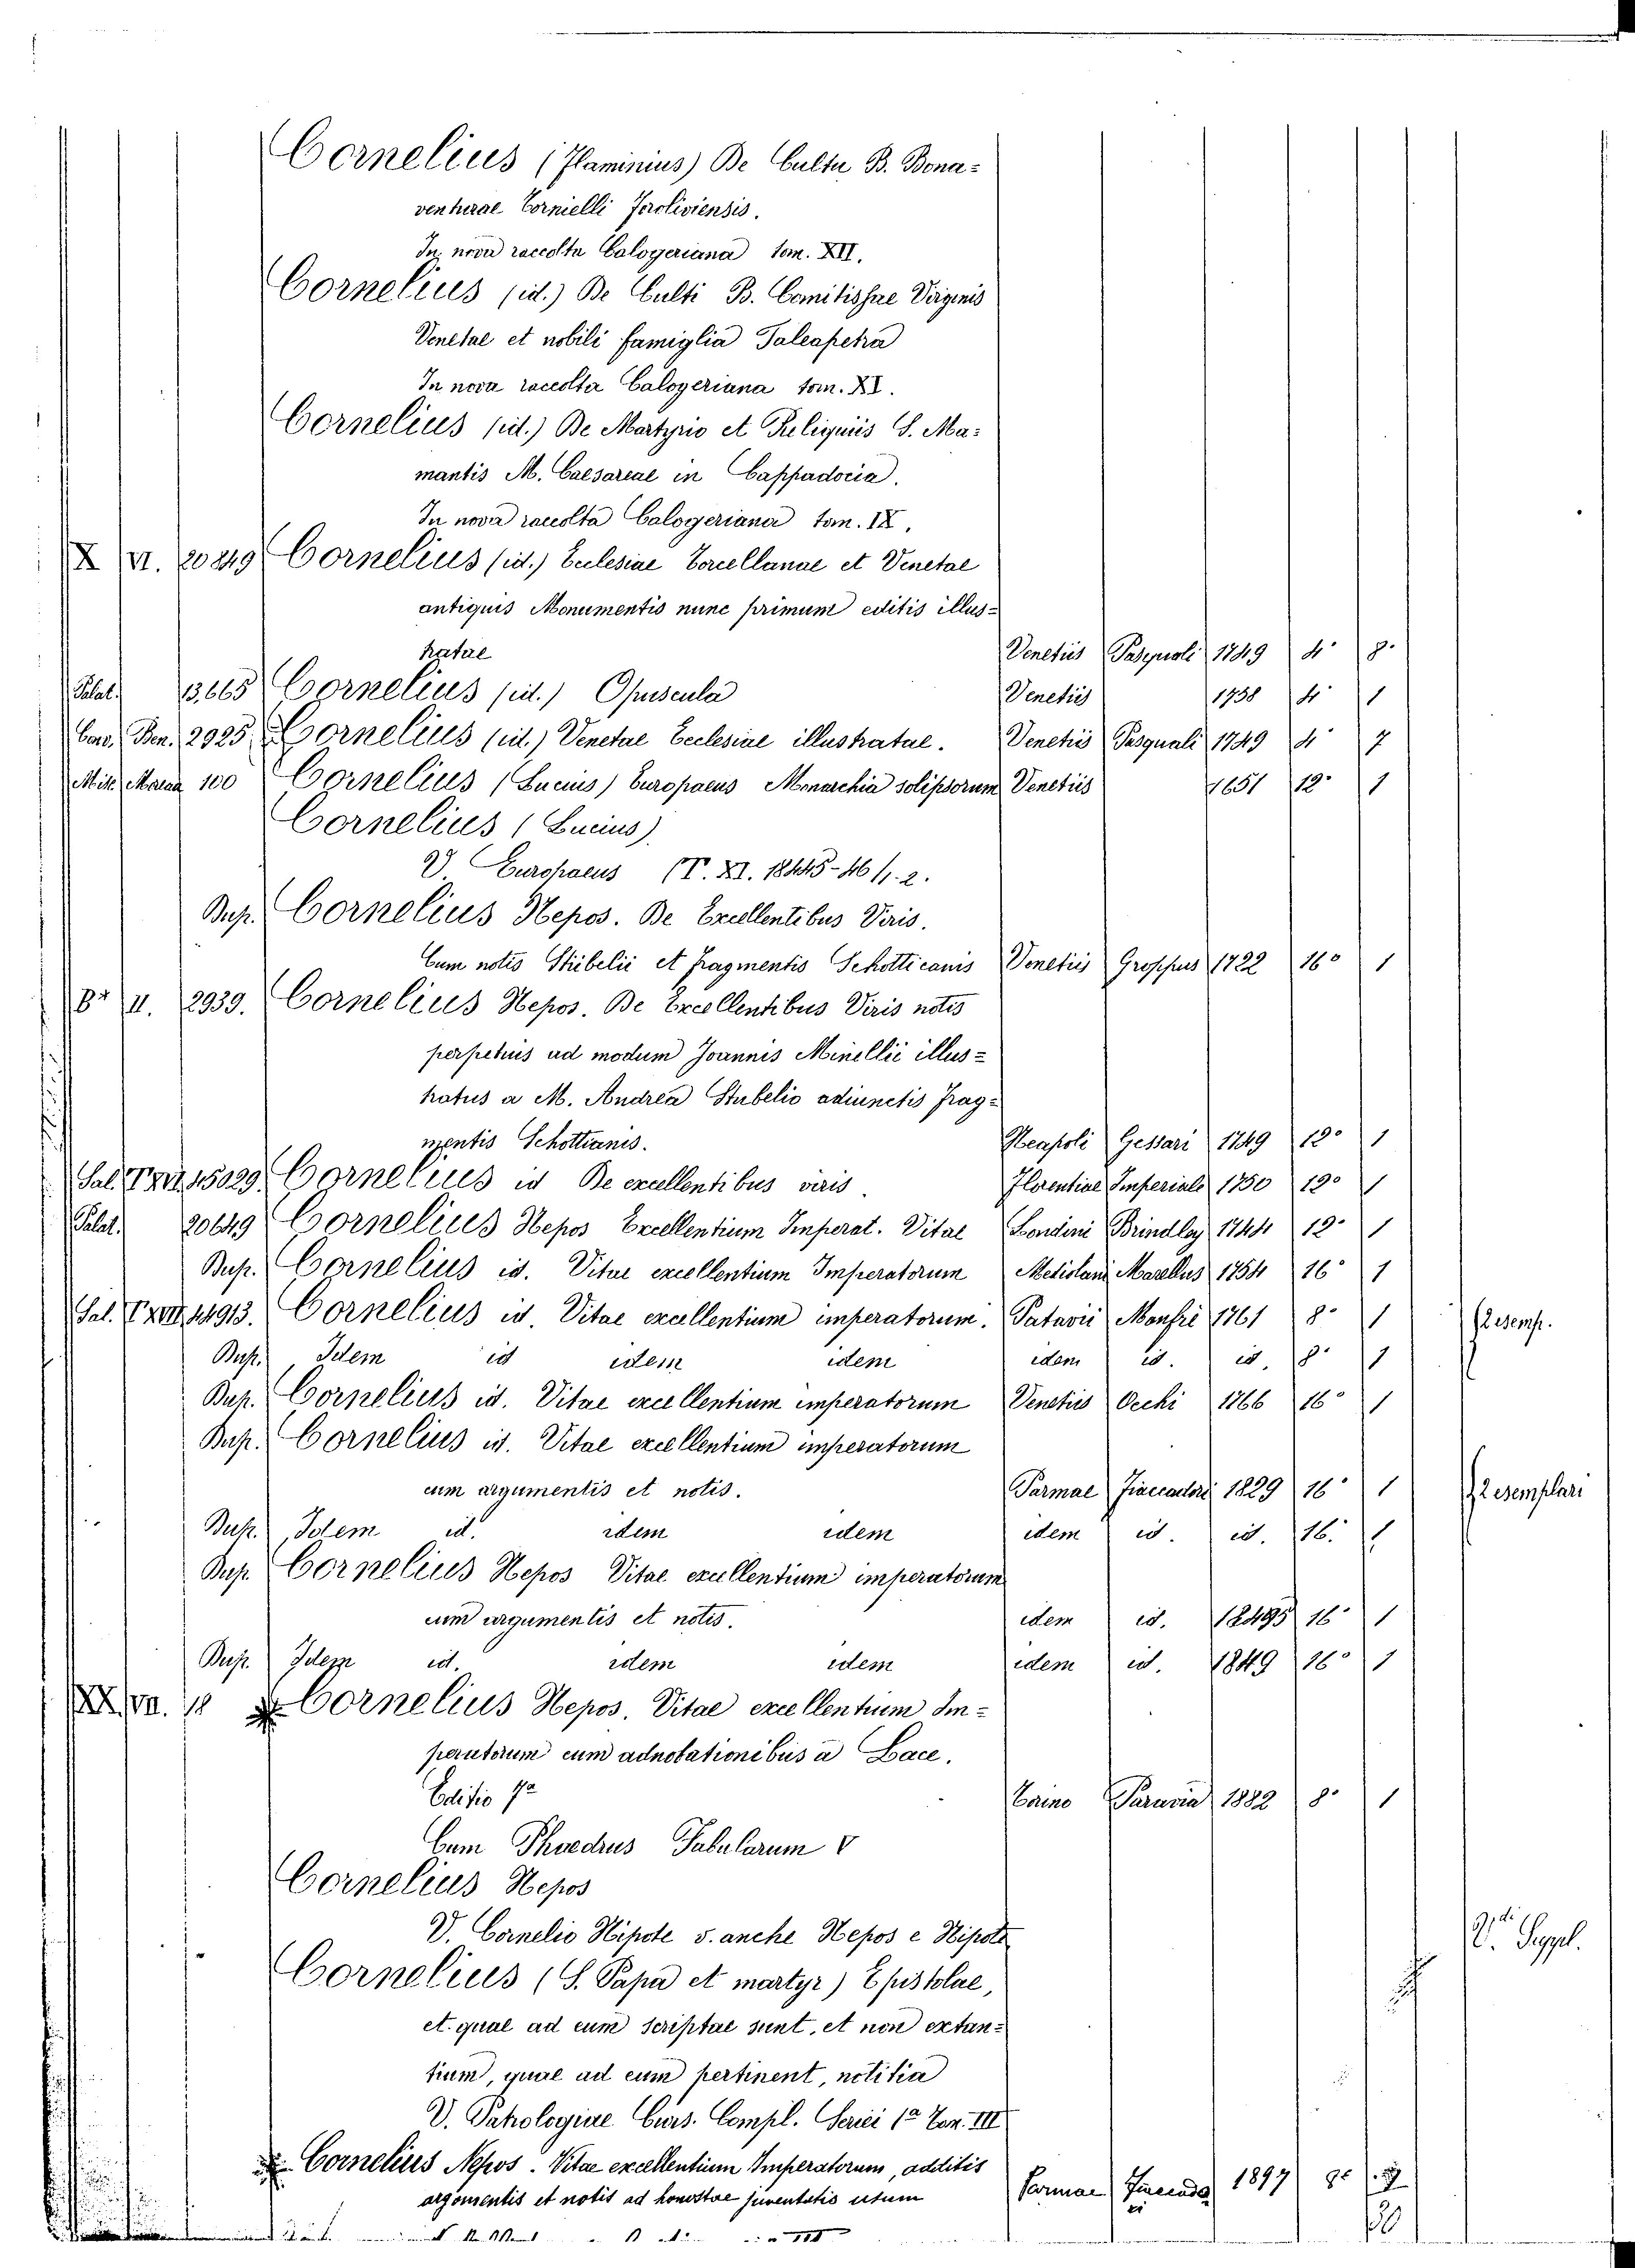 Cornelius (Flaminius) De Cultu B. Bona=
venturae Cornielli Foroliviensis.
In nova raccolta Calogeriana tom. XII.
Cornelius (id.) De Culti B. Comitissae Virginis
Venetae et nobili famiglia Taleapetra
In nova raccolta Calogeriana tom. XI.
Cornelius (id.) De Martyrio et Reliquiis S. Ma=
mantis M. Caesareae in Cappadocia.
In nova raccolta Calogeriana tom. IX.
X VI. 20249 Cornelius (id.) Eclesiae Torcellanae et Venetae
antiquis Monumentis nunc primum editis illus=
tratae Venetiis Pasquali 1749 4° 8.
Palat. 13,665 Cornelius (id.) Opuscula Venetiis 1738 4° 1
Ben. 2925 Cornelius (id.) Venetae Ecclesiae illustratae. Venetiis Pasquali 1749 4° 7
100 Cornelius (Lucius) Europaeus Monarchia solipsorum Venetiis 1651 12° 1
Cornelius (Lucius)
V. Europaeus (T. XI. 18445-46/1.2.
Bup. Cornelius Nepos. De Excellentibus Viris.
Cum notis Stübelii et fragmentis Schotticanis Venetiis Groppus 1722 16° 1
Br II. 2939. Cornelius Nepos. De Excellentibus Viris notis
perpetuis ad modum Joannis Minellii illus=
tratus a M. Andrea Stubelio adiunctis frag=
mentis Schottianis. Neapoli Gessari 1749 12° 1
Sal. T XVI 15029. Cornelius id De excellentibus viris. Florentiae Imperiale 1750 12° 1
Palat. 20649 Cornelius Nepos Excellentium Imperat. Vitae Londini Brindley 1744 12° 1
Bup. Cornelius id. Vitae excellentium Imperatorum Mediolani Marellus 1754 16° 1
Sal. T XVII 14913. Cornelius id Vitae excellentium imperatorum. Patavii Manfré 1761 8° 1 2 esemp.
Bup. Idem id idem idem idem id. id. 8° 1
Bup. Cornelius id. Vitae excellentium imperatorum Venetiis Occhi 1766 16° 1
Bup. Cornelius id. Vitae excellentium imperatorum
cum argumentis et notis. Parmae Fiaccadori 1829 16° 1 2 esemplari
Bup. Idem id. idem idem idem id. id. 16. 1
Bup. Cornelius Nepos Vitae excellentium imperatorum
cum argumentis et notis. idem id. 16° 1
Bup. Idem id. idem idem idem id. 1849 16° 1
XX. VII. 18 Cornelius Nepos. Vitae excellentium Im=
peratorum cum adnotationibus a Lace.
Editio 7a Torino Paravia 1882 8° 1
Cum Phaedrus Fabularum V
Cornelius Nepos
V. Cornelio Nipote v. anche Nepos e Nipote
V. di Suppl.
Cornelius (S. Papa et martyr) Epistolae,
et. quae ad eum scriptae sunt, et non extan=
tium, quae ad eum pertinent, notitia
V. Patrologiae Curs. Compl. Seriei 1a Tom. III
Cornelius Nepos. Vitae excellentium Imperatorum, additis
argomentis et notis ad honestae juventutis usum Parmae 1897 8°
30